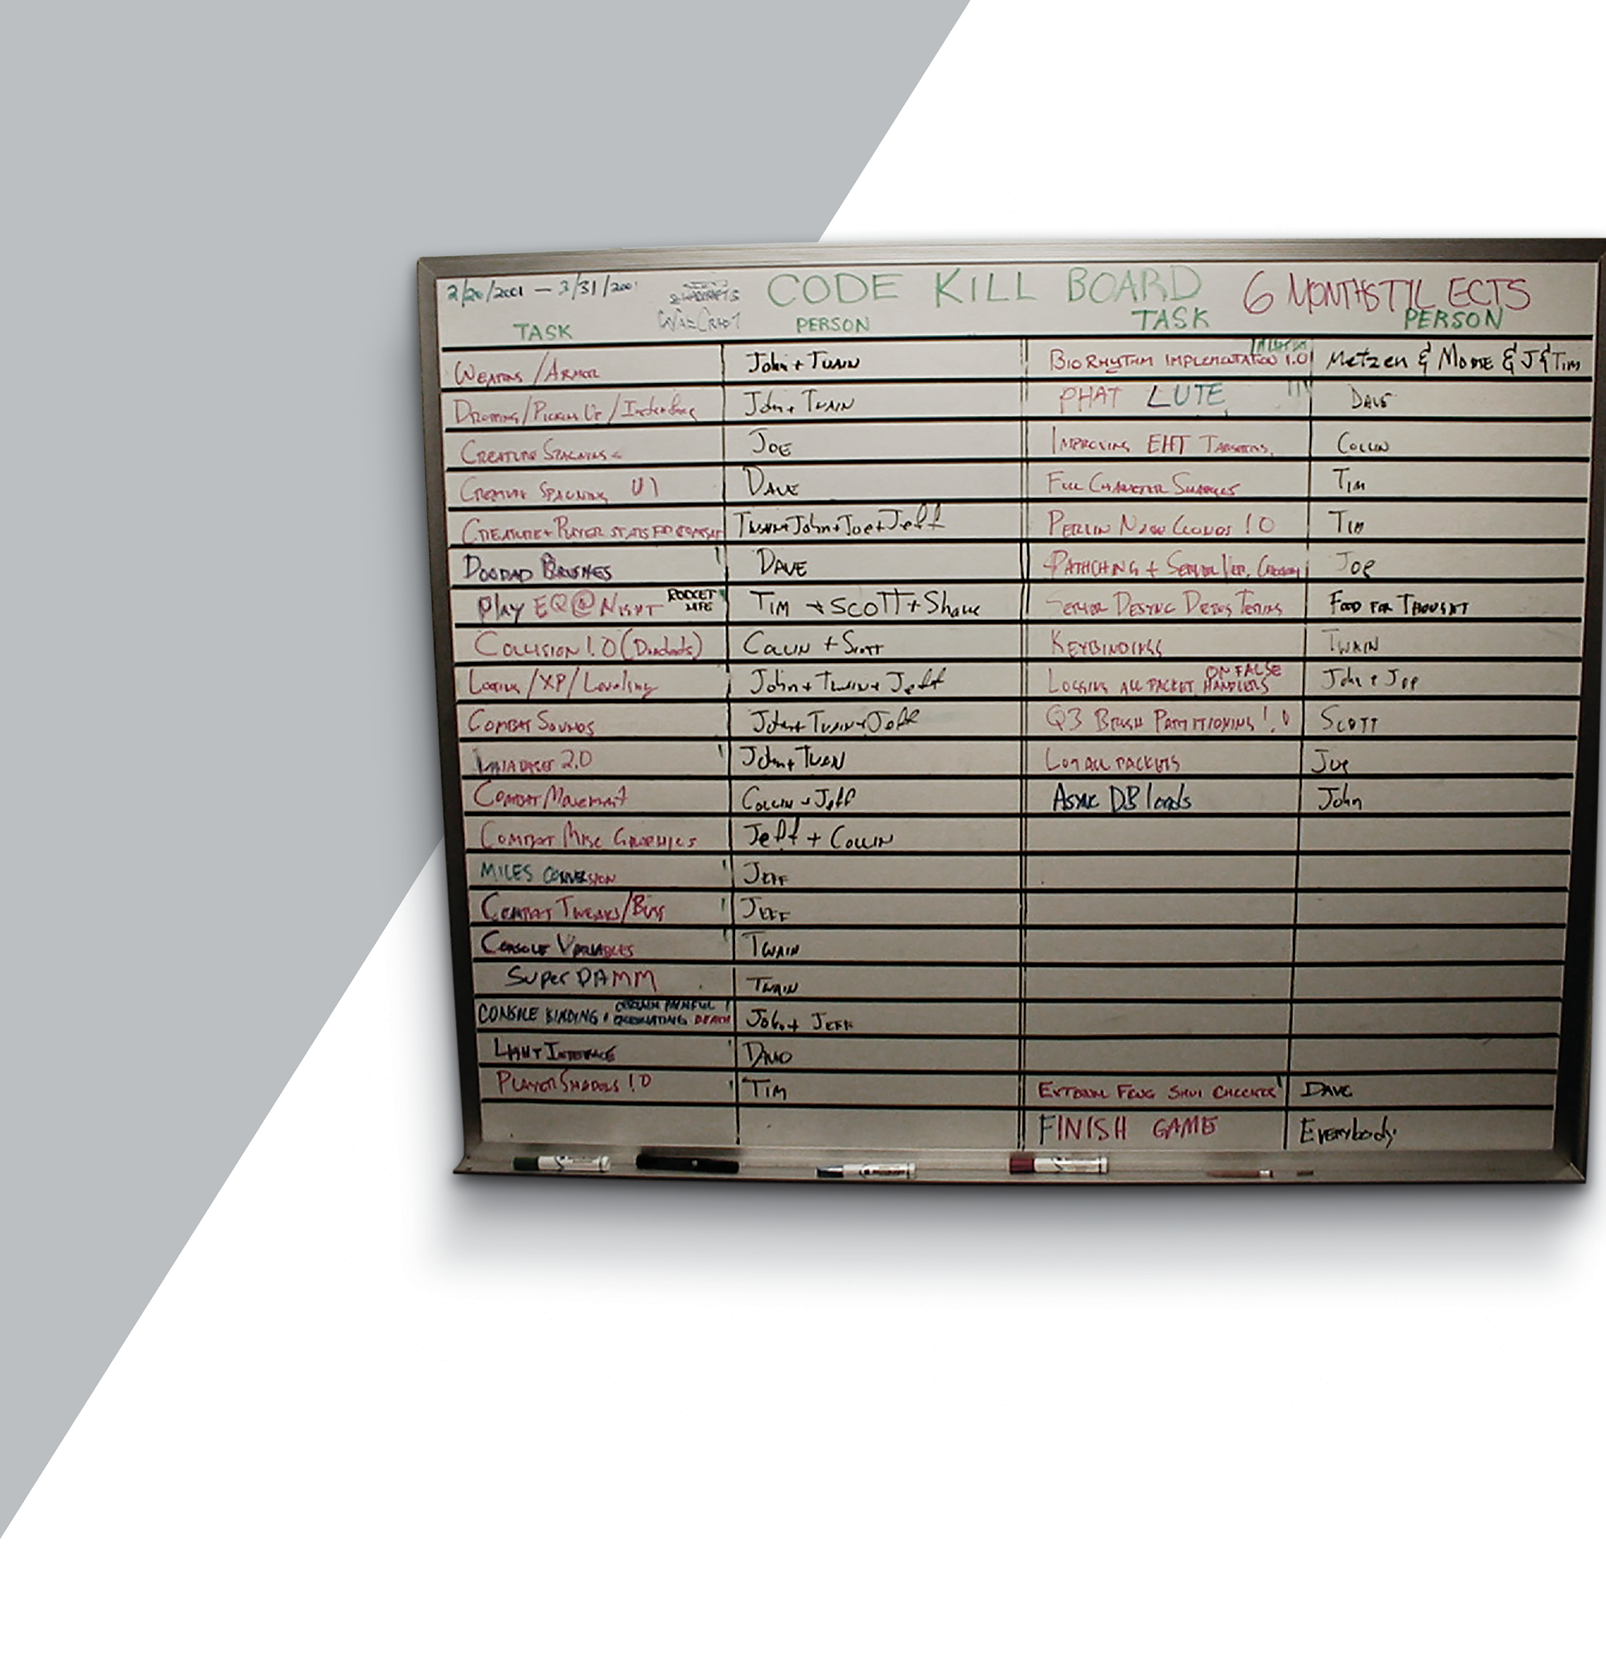 2/20/2001 — 3/31/2001 CODE KILL BOARD 6 MONTHS TIL ECTS
TASK PERSON TASK PERSON
WEAPONS/ARMOR John + TWAIN BIO RHYTHM IMPLEMENTATION 1.0 Metzen & MORE & J & TIM
DROPPING/PICKING UP/ John + TWAIN PHAT LUTE DAVE
CREATURE SPAWNING JOE IMPROVING COLLIN
CREATURE SPAWNING UI DAVE FULL CHARACTER SHADOWS TIM
CREATURE + PLAYER STATS FOR COMBAT TWAIN + John + Joe + Jeff PERLIN NOISE CLOUDS 1.0 TIM
DOODAD BRUSHES DAVE PATHCHING + SERVER VER. Joe
Play EQ @ NIGHT ROCKET TIM + SCOTT + Shane SERVER DESYNC FOOD FOR THOUGHT
COLLISION 1.0 (Doodads) COLLIN + SCOTT KEYBINDINGS TWAIN
/XP/Leveling John + TWAIN + Jeff LOGGING ALL PACKET HANDLERS ON FALSE John + Joe
COMBAT SOUNDS John + TWAIN + Jeff Q3 BRUSH PARTITIONING 1.0 SCOTT
2.0 John + TWAIN LOG ALL PACKETS Joe
COMBAT Movement COLLIN + Jeff ASYNC DB loads John
COMBAT MISC GRAPHICS Jeff + COLLIN
MILES CONVERSION JEFF
COMBAT TWEAKS/BUGS JEFF
CONSOLE VARIABLES TWAIN
Super DAMM TWAIN
CONSOLE BINDING DEATH John + JEFF
LIGHT INTERFACE DAVID
PLAYER SHADOWS 1.0 TIM EXTERNAL FENG SHUI CHECKER DAVE
FINISH GAME Everybody